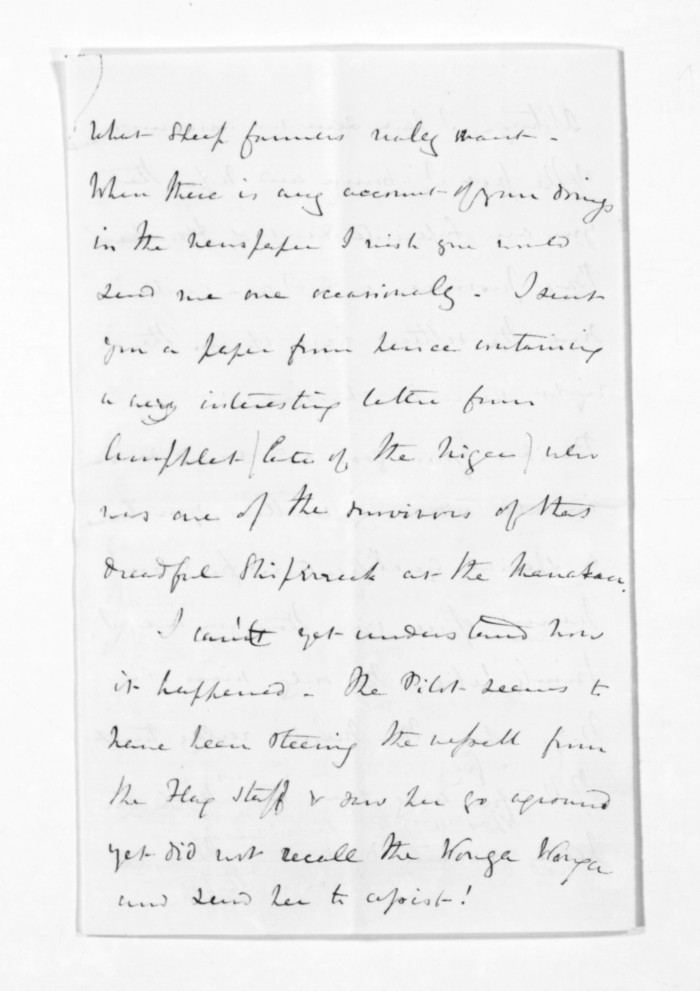 What Sheep farmers realy want -
When there is any account of your doings
in the newspaper I wish you would
send me one occasionely - I sent
you a paper from hence containing
a very interesting letter from
(late of the Niger) who
was one of the survivors of that
dreadful Shipwreck at the Manakau.
I can't yet understand how
it happened - The Pilot seems to
have been steering the vessell from
the Flag staff & saw her go aground
yet did not recall the Wonga Wonga
and send her to assist!